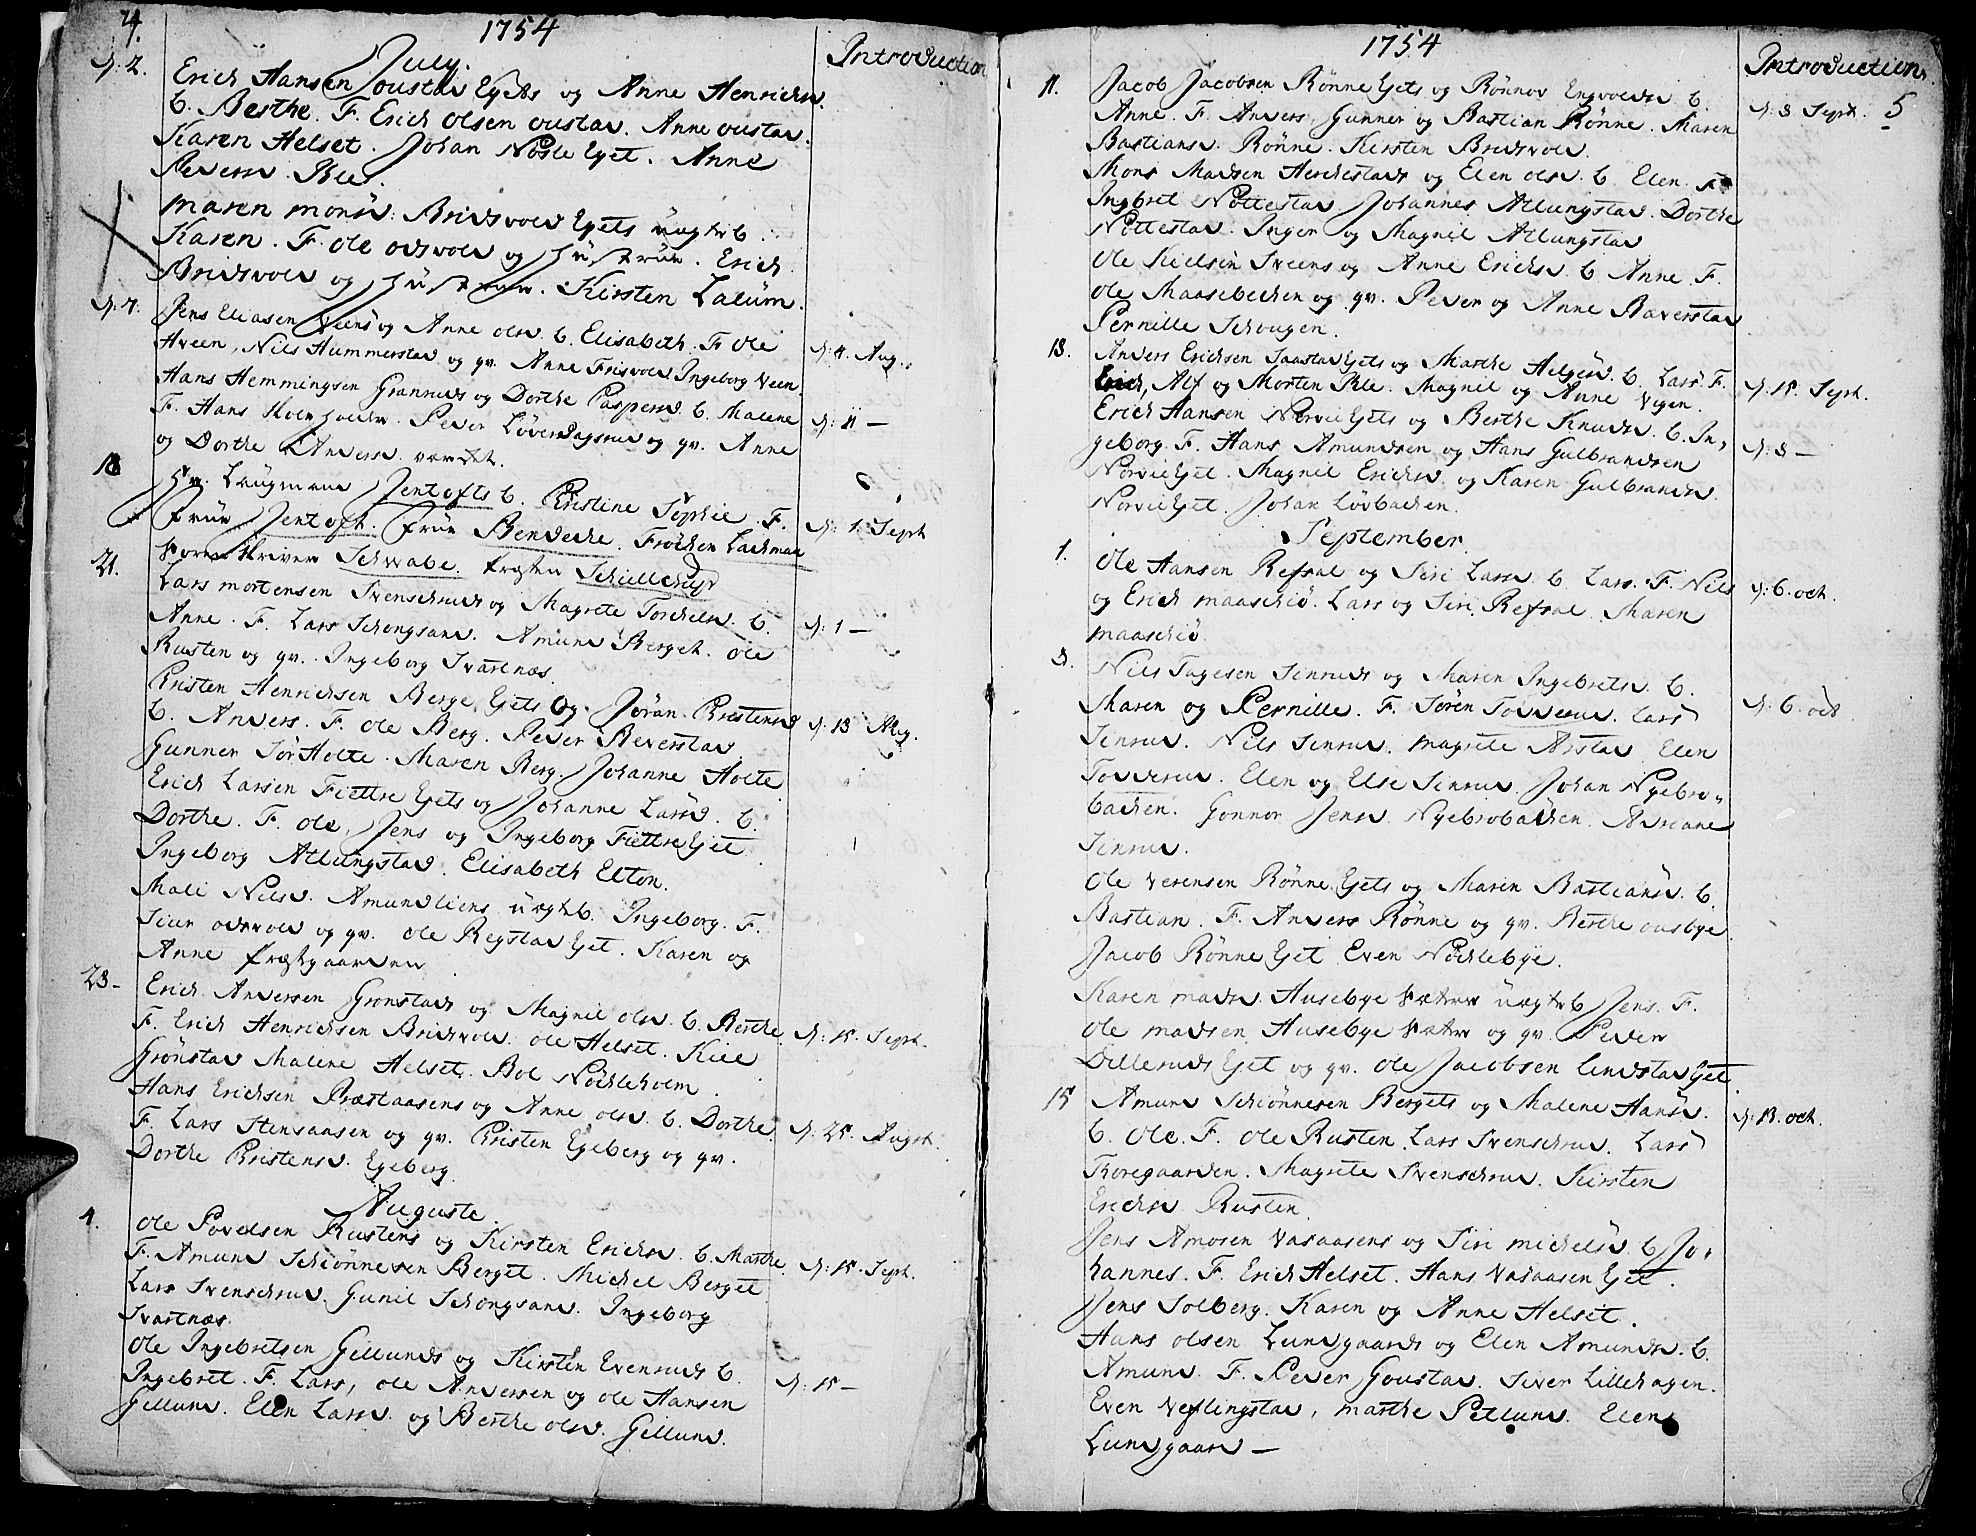 4.
1754
July.
Introduction
d: 2.
Erich Hansen Oustad Eyets og Anne Henrichsd.
b. Berthe. F. Erich Olsen Oustad. Anne Oustad.
Karen Helset. Johan Nøsle Eyet. Anne
Peders. Ble.
Maren Monsd. Bridsvold Eyets uægte b.
Karen. F. Ole Odsvold og Hustrue. Erich
Bridsvold og Hustrue. Kirsten Lalum.
d: 7.
Jens Eliasen Veens og Anne Olsd. b. Elisabeth. F. Ole
Hveen, Nils Hummerstad og qv. Anne Frisvold Ingeborg Veen.
d: 4. Aug.
Hans Hemmingsen Granruds og Dorthe Caspersd. b. Malene
F. Hans Peder Løverdagsrud og qv. Anne
d: 11 —
og Dorthe Andersd.
18
Hr. Laugmand Jentofts b. Christine Sophie. F.
Frue Jentoft. Frue Bendeche. Frøchen Lachman
d: 1. Sept
Sorenskriver Schwabe. Præsten
21.
Lars Mortensen Svenschruds og Magrete Torchelsd. b.
Anne. F. Lars Schongsand. Amund Berget. Ole
d: 1 —
Rusten og qv. Ingeborg Svartnæs.
Christen Henrichsen Berge Eyets og Jøran Christensd
b. Anders. F. Ole Berg. Peder Beverstad
d: 18 Aug.
Gunner Sør Holte. Maren Berg. Johanne Holte
Erich Larsen Fiettre Eyets og Johanne Larsd. b.
Dorthe. F. Ole, Jens og Ingeborg Fiettre Eyet
Ingeborg Atlungstad. Elisabeth Elton.
Mali Nilsd. Amundliens uægte b. Ingeborg. F.
Siur Odsvold og qv. Ole Regstad Eyet. Karen og
Anne Præstgaarden
23 —
Erich Andersen Grønstads og Magnil Olsd. b. Berthe
F. Erich Henrichsen Bridsvold. Ole Helset. Kiel
d: 15. Sept.
Grønstad Malene Helset. Boe Nøchleholm
Hans Erichsen Præstaasens og Anne Olsd. b. Dorthe.
F. Lars Stensaasen og qv. Christen Egeberg og qv.
d: 25. Augst.
Dorthe Christensd. Egeberg
Auguste.
4.
Ole Povelsen Rustens og Kirsten Erichsd. b. Marthe.
F. Amund Schiønnesen Berget. Michel Berget
d: 15. Sept.
Lars Svenschrud. Gunil Schongsand. Ingeborg
Svartnæs.
Ole Ingebretsen Gillunds og Kirsten Evensruds b.
Ingebret. F. Lars, Ole Andersen og Ole Hansen
d: 15 —
Gillund. Elen Larsd. og Berthe Olsd. Gillund.
1754
Introduction.
5
11.
Jacob Jacobsen Rønne Eyets og Rønnov Engvoldsd b.
Anne. F. Anders, Gunner og Bastian Rønne. Maren
d: 8 Sept.
Bastiansd. Rønne. Kirsten Bridsvold.
Mons Madsen Herchestads og Elen Olsd. b. Elen. F.
Ingbret Nøttestad. Johannes Atlungstad. Dorthe
Nøttestad. Inger og Magnil Atlungstad
Ole Kielsen Sveens og Anne Erichsd. b. Anne. F.
Ole Maasebachen og qv. Peder og Anne Bæverstad
Pernille Schougen.
18.
Anders Erichsen Saastad Eyets og Marthe Helgesd. b. Lars. F.
Erich, Alf og Morten Ble. Magnil og Anne Vigen.
d: 15. Sept.
Erich Hansen Norvie Eyets og Berthe Knudsd. b. In-
geborg. F. Hans Amundsen og Hans Gulbrandsen
d: 8 —
Norvie Eyet. Magnil Erichsd. og Karen Gulbrandsd.
Norvie Eyet. Johan Løvbachen.
September.
1.
Ole Hansen Refsal og Siri Larsd. b. Lars. F. Nils
og Erich Maaschiø. Lars og Siri Refsal. Maren
d: 6. oct.
Maaschiø.
8.
Nils Tagesen Sinruds og Maren Ingebretsd. b.
Maren og Pernille. F. Søren Tosserud. Lars
d: 6. oct
Sinrud. Nils Sinrud. Magrete Arstad. Elen
Tosserud. Elen og Else Sinrud. Johan Nyebro-
bachen. Gonnor Jensd. Nyebrobachen. Adriane
Sinrud.
Ole Verensen Rønne Eyets og Maren Bastiansd. b.
Bastian. F. Anders Rønne og qv. Berthe Ousbye.
Jacob Rønne Eyet. Even Nøchlebye.
Karen Madsd. Husebye uægte b. Jens. F.
Ole Madsen Husebye og qv. Peder
Dillerud Eyet og qv. Ole Jacobsen Lindstad Eyet.
15
Amund Schiønnesen Bergets og Malene Hansd.
b. Ole. F. Ole Rusten. Lars Svenschrud. Lars
d: 13. oct.
Koregaarden. Magrete Svenschrud. Kirsten
Erichsd Rusten.
Jens Amosen Vasaasens og Siri Michelsd. b. Jo-
hannes. F. Erich Helset. Hans Vasaasen Eyet.
Jens Solberg. Karen og Anne Helset.
Hans Olsen Lundgaards og Elen Amundsd. b.
Amund. F. Peder Goustad. Siver Lillehagen.
Even Veflingstad, Marthe Petlund. Elen
Lundgaard —